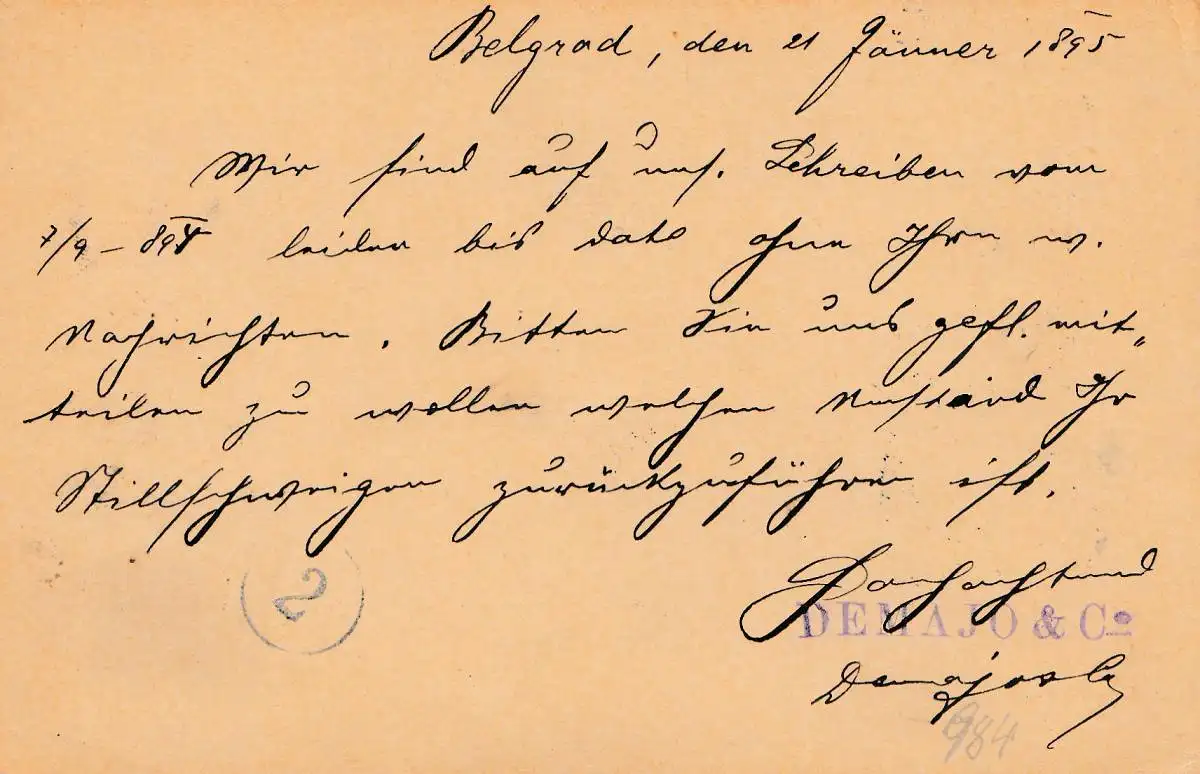 Belgrad, den 21 Jänner 1895
Wir sind auf uns. Schreiben vom
7/9 – 894 leider bis dato ohne Ihre w.
Nachrichten. Bitten Sie uns gefl. mit„
teilen zu wollen welchen Umstand Ihr
Stillschweigen zurückzuführen ist.
Hochachtend
DEMAJO & Co
Demajo & Co
2
984